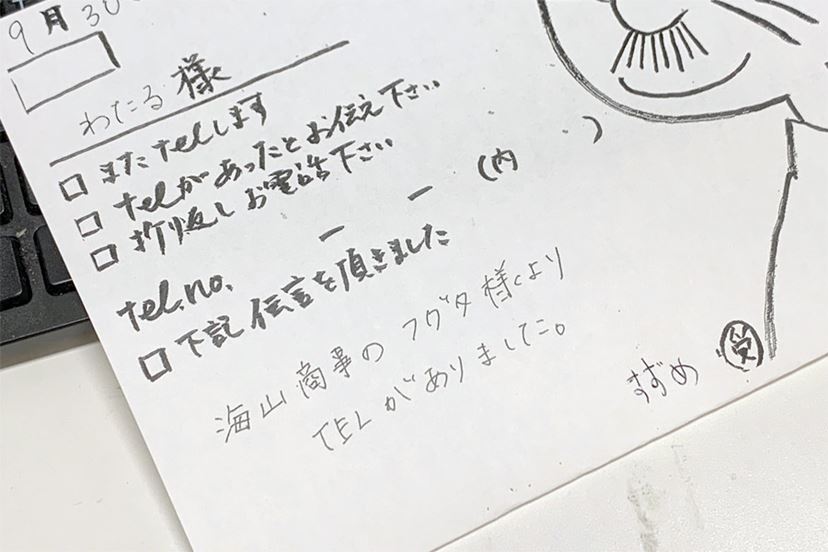 9月30
わたる様
□またtelします
□telがあったとお伝え下さい
□折り返しお電話下さい
tel.no. ー ー (内 )
□下記伝言を頂きました
海山商事のフグタ様より
TELがありました。
すずめ 受